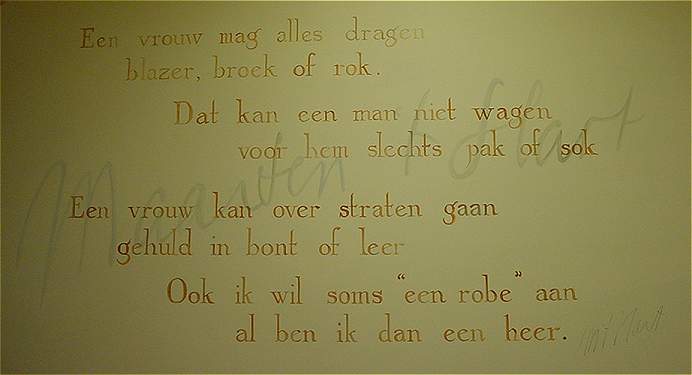 Een vrouw mag alles dragen
blazer, broek of rok.
Dat kan een man niet wagen
voor hem slechts pak of sok
Een vrouw kan over straten gaan
gehuld in bont of leer
Ook ik wil soms "een robe" aan
al ben ik dan een heer.